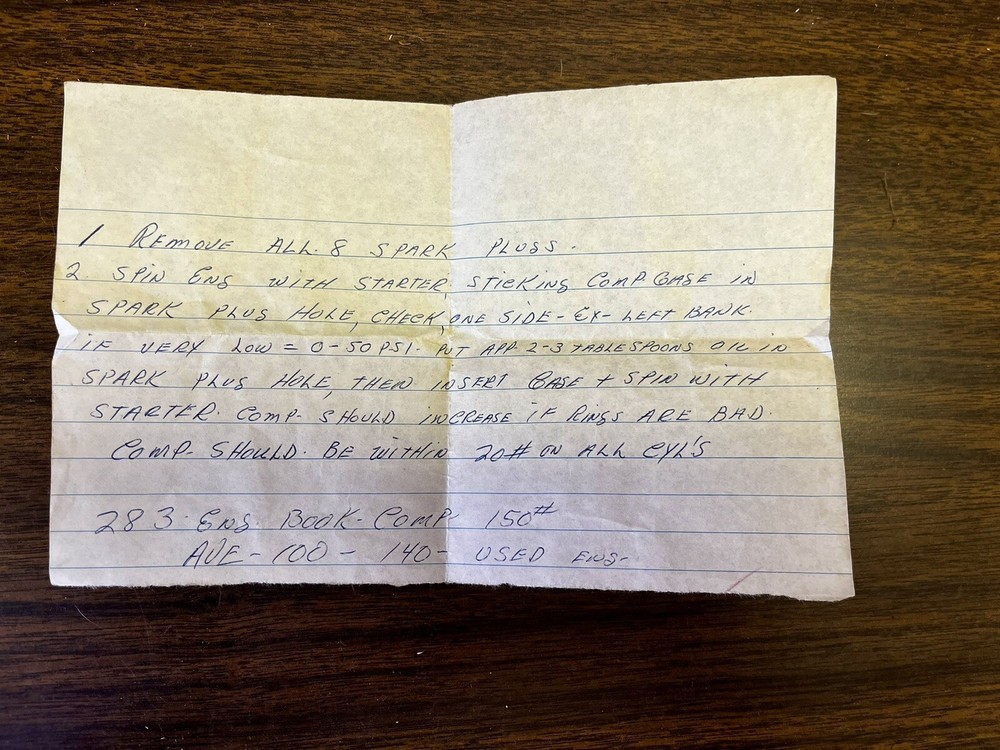 1 REMOVE ALL. 8 SPARK PLUGS.
2. SPIN ENG WITH STARTER, STICKING COMP GAGE IN
SPARK PLUG HOLE, CHECK, ONE SIDE - EX - LEFT BANK.
IF VERY LOW = 0-50 PSI. PUT APP 2-3 TABLESPOONS OIL IN
SPARK PLUG HOLE, THEN INSERT GAGE + SPIN WITH
STARTER. COMP- SHOULD INCREASE IF RINGS ARE BAD.
COMP- SHOULD. BE WITHIN 20# ON ALL CYL'S
283- ENG. BOOK- COMP- 150#
AVE - 100 - 140 - USED ENG-